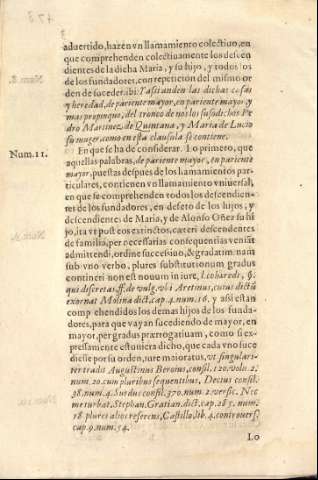 aduertido, hazẽ vn llamamiento colectiuo, en
que comprehenden colectiuamente los descen
dientes de la dicha Maria, y su hijo, y todos los
de los fundadores, con repeticion del mismo or
den de suceder. ibi: Y assi anden las dichas casas
y heredad, de pariente mayor, en pariente mayor, y
mas propinquo, del tronco de nos los susodichos Pe
dro Martinez de Quintana, y Maria de Lucio
su muger, como en esta clausula se contiene.
Num. 11.
En que se ha de considerar. Lo primero, que
aquellas palabras, de pariente mayor, en pariente
mayor, puestas despues de los llamamientos par-
ticulares, contienen vn llamamiento vniuersal,
en que se comprehenden todos los descendien-
tes de los fundadores, en defeto de los hijos, y
descendientes de Maria, y de Alonso Oñez su hi
jo, ita vt post eos extinctos, cæteri descendentes
de familia, per necessarias consequentias veniãt
admittendi, ordine successiuo, & gradatim: nam
sub vno verbo, plures substitutionum gradus
contineri non est nouum in iure, l. cohæredi, §.
qui discretas, ff. de vulg. vbi Aretinus, cuius dictũ
exornat Molina dict. cap. 4. num. 16. y assi estàn
comprehendidos los demas hijos de los funda
dores, para que vayan sucediendo de mayor, en
mayor, per gradus prærrogatiuam, como si ex-
pressamente estuuiera dicho, que cada vno suce
diesse por su orden, iure maioratus, vt singulari-
ter tradit Augustinus Beroius, consil. 120. volu. 2.
num. 20. cum pluribus sequentibus, Decius consil.
38. num. 4. Surdus consil. 370. num. 2. versic. Nec
me turbat, Stephan. Gratian. dict. cap. 285. num.
18. plures alios referens, Castillo, lib. 4. controuers.
cap. 9. num. 54.
Lo